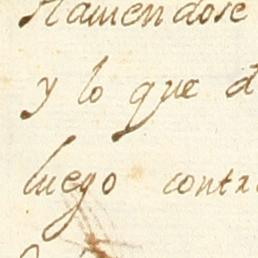 Haviendose
y lo que d
luego contra